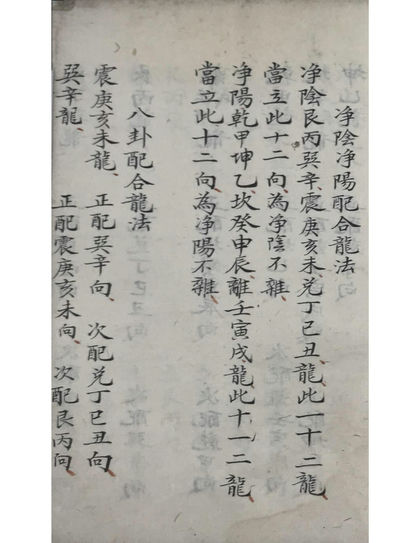 净陰净陽配合龍法
净陰艮丙巽辛震庚亥未兌丁巳丑龍此一十二龍
當立此十二向為净陰不雜
净陽乾甲坤乙坎癸申辰離壬寅戌龍此十一二龍
當立此十二向為净陽不雜
八卦配合龍法
震庚亥未龍 正配巽辛向 次配兌丁巳丑向
巽辛龍 正配震庚亥未向 次配艮丙向